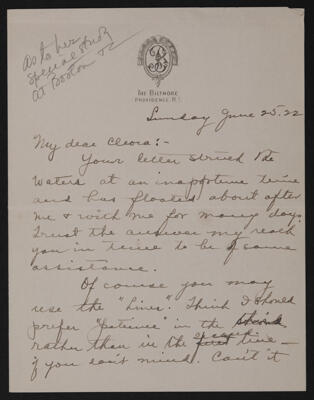 As to her
special study
at Boston
THE BILTMORE
PROVIDENCE, R.I.
Sunday June 25. 22
My dear Cleora:-
Your letter struck the
waters at an inopportune time
and has floated about after
me & with me for many days.
Trust the answer may reach
you in time to be of some
assistance.
Of course you may
use the "lines". Think I should
prefer "patience" in the
rather than in the second line —
if you don't mind. Can't it